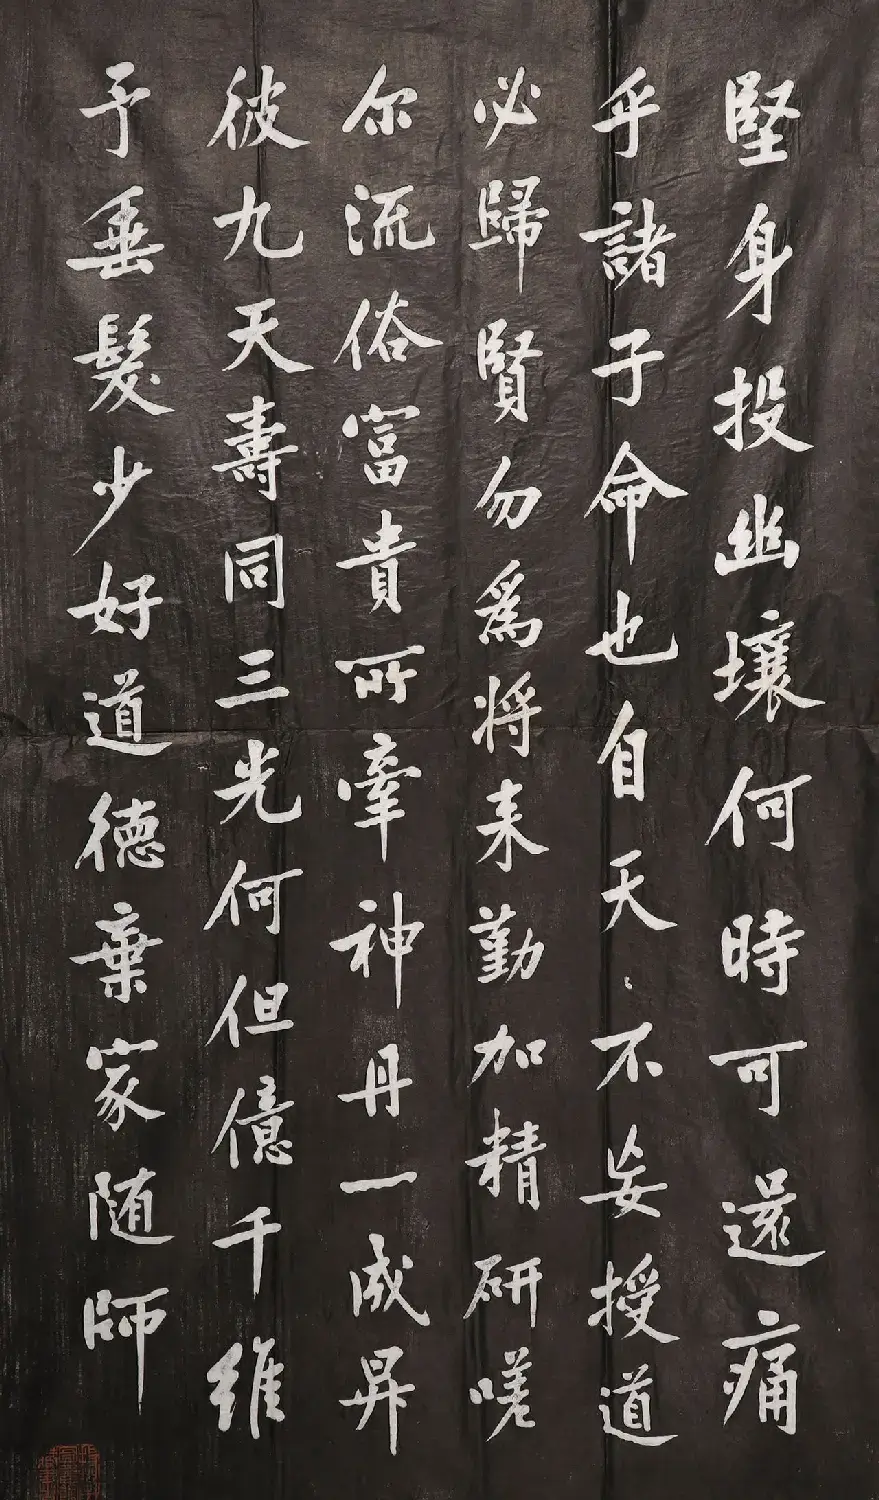 堅身投幽壤何時可還痛
乎諸子命也自天〻不妄授道
必歸賢勿為將来勤加精研嗟
尔流俗富貴所牽神丹一成昇
彼九天壽同三光何但億千維
予垂髮少好道德棄家随師